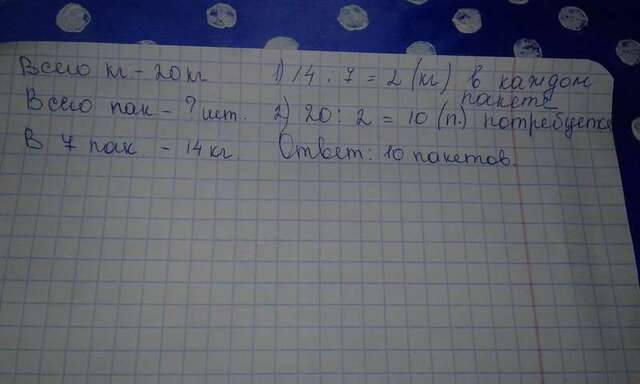 Всего кг - 20 кг
Всего пак - ? шт.
В 7 пак. - 14 кг.
1) 14 : 7 = 2 (кг) в каждом
пакете
2) 20 : 2 = 10 (п.) потребуется
Ответ: 10 пакетов.